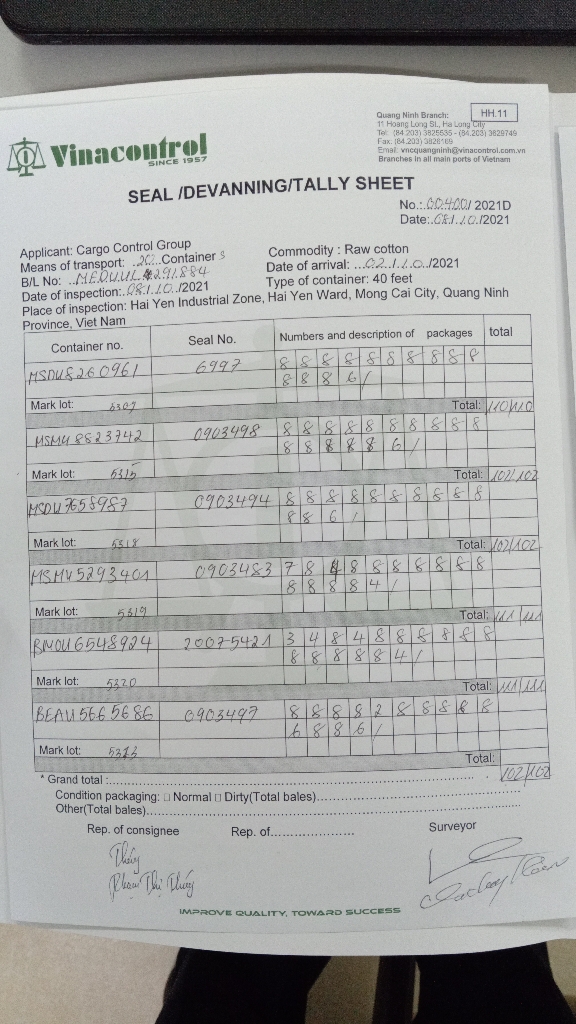 HH.11
Quang Ninh Branch:
11 Hoang Long St., Ha Long City
Tel: (84.203) 3825535 - (84.203) 3829749
Fax: (84.203) 3826169
Email: vncquangninh@vinacontrol.com.vn
Branches in all main ports of Vietnam
Vinacontrol
SINCE 1957
SEAL /DEVANNING/TALLY SHEET
No.: / 2021D
Date: 08/10/2021
Applicant: Cargo Control Group
Commodity : Raw cotton
Means of transport: Containers
Date of arrival: 02/10/2021
B/L No: 291884
Type of container: 40 feet
Date of inspection: 08/10/2021
Place of inspection: Hai Yen Industrial Zone, Hai Yen Ward, Mong Cai City, Quang Ninh
Province, Viet Nam
Container no. Seal No. Numbers and description of packages total
MSDU8260961 6997 8 8 8 8 8 8 8 8 8 8
8 8 8 6 /
Mark lot: 6307 Total: 110/110
MSMU8823742 0903498 8 8 8 8 8 8 8 8 8 8
8 8 8 8 8 6 /
Mark lot: 5315 Total: 102/102
MSDU7658987 0903494 8 8 8 8 8 8 8 8 8 8
8 8 6 /
Mark lot: 5318 Total: 102/102
MSMV5293401 0903483 7 8 8 8 8 8 8 8 8
8 8 8 8 4 /
Mark lot: 5319 Total: 111/111
BMOU6548924 20075421 3 4 8 4 8 8 8 8 8 8
8 8 8 8 8 4 /
Mark lot: 5320 Total: 111/111
BEAU5665686 0903497 8 8 8 8 2 8 8 8 8 8
6 8 8 6 /
Mark lot: Total: 102/102
* Grand total :
Condition packaging: □ Normal □ Dirty(Total bales)
Other(Total bales)
Rep. of consignee Rep. of Surveyor
Thúy
Phạm Thị Thúy
IMPROVE QUALITY, TOWARD SUCCESS